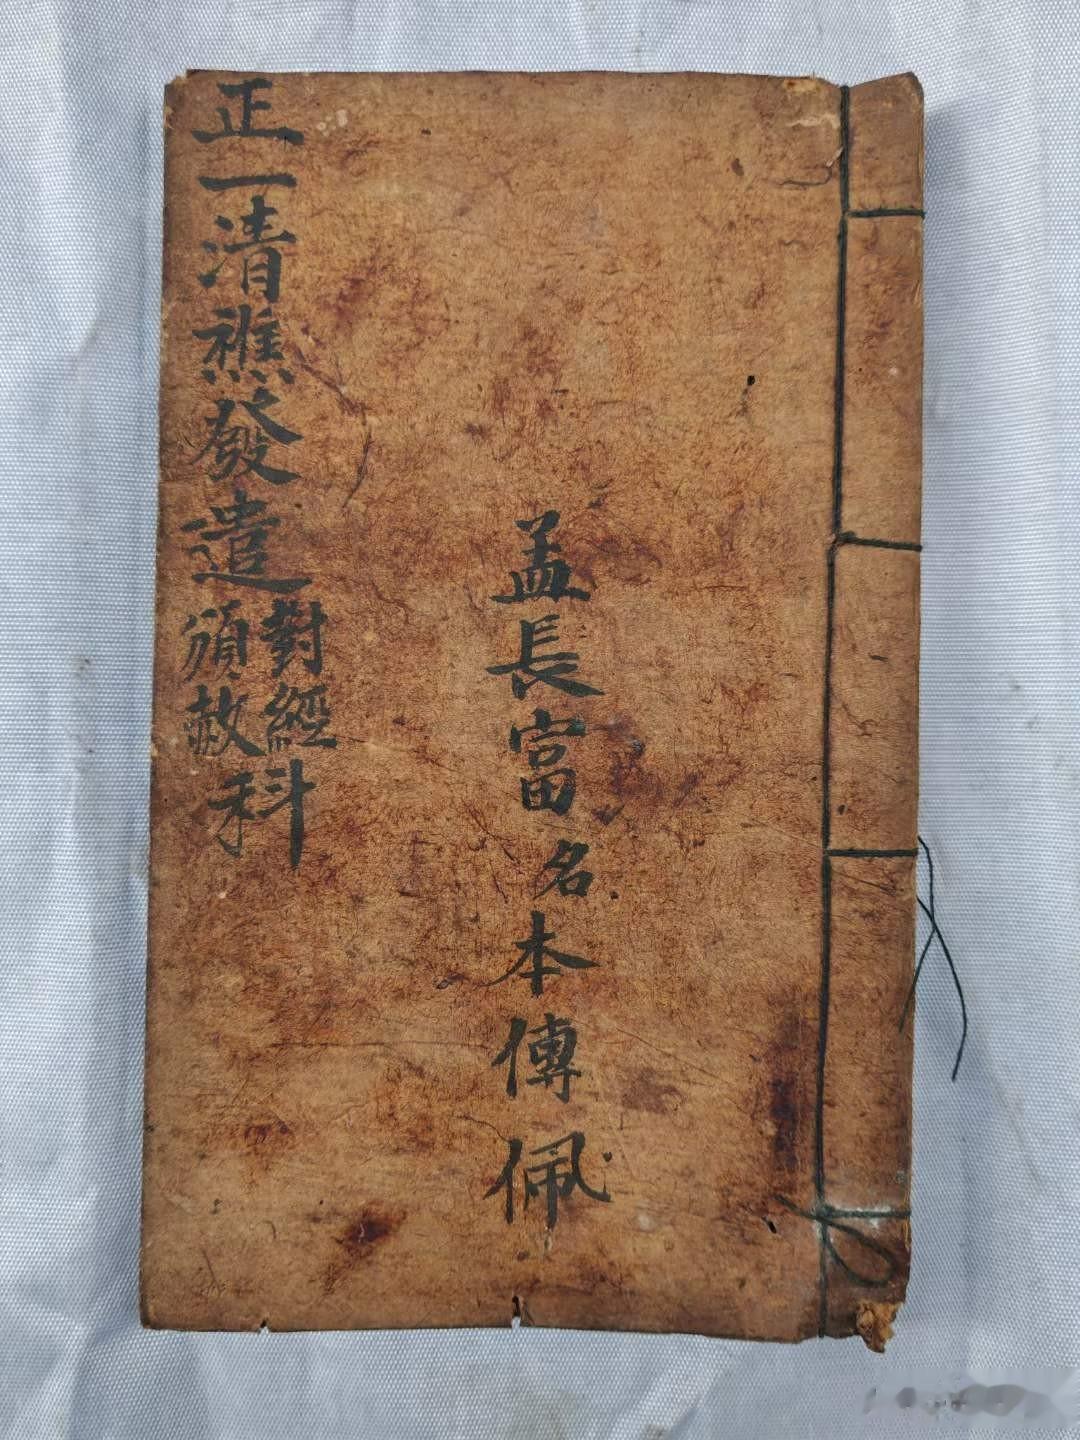 孟長富名本傳佩
正一清醮發遣對經頒赦科